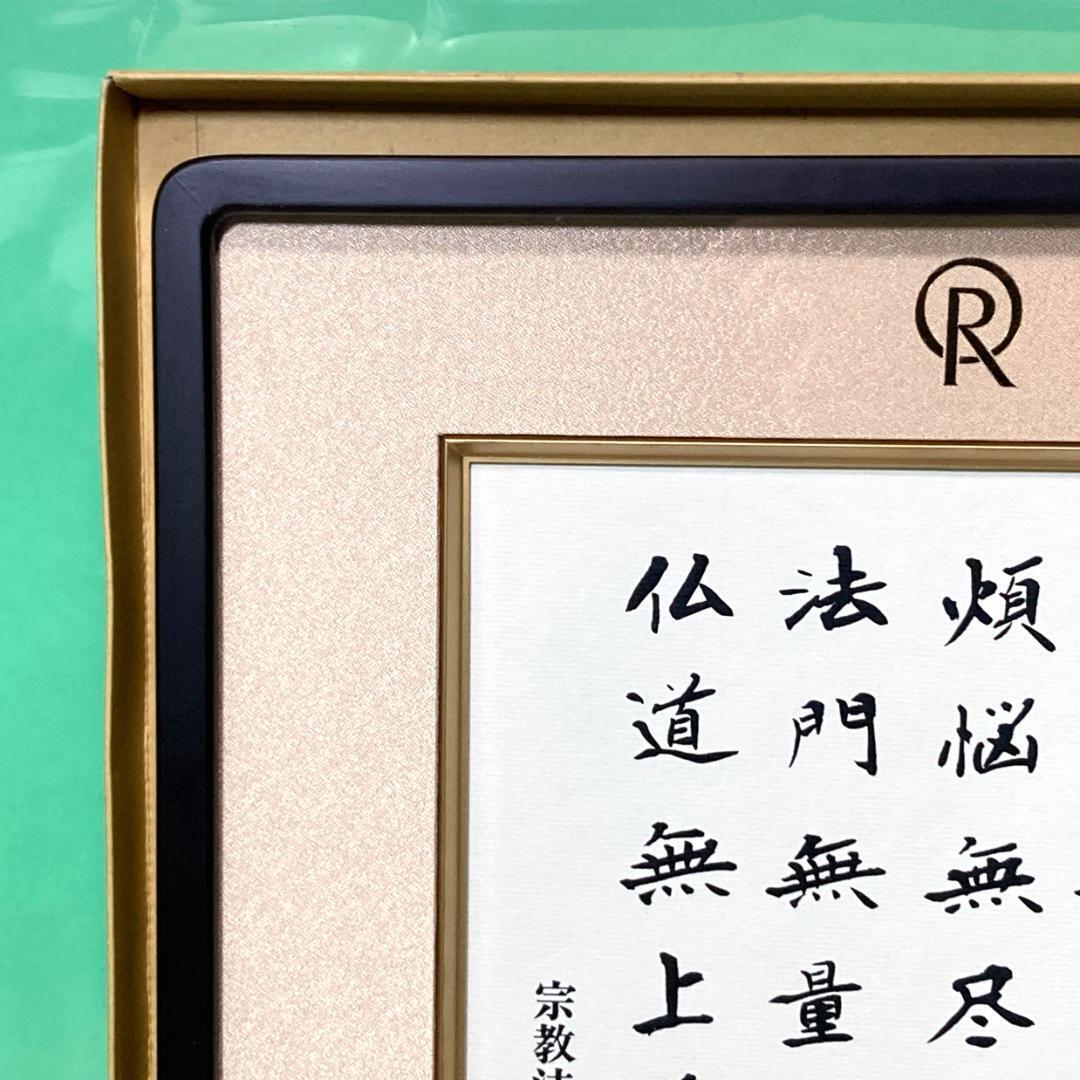 煩悩無尽
法門無量
仏道無上
宗教法